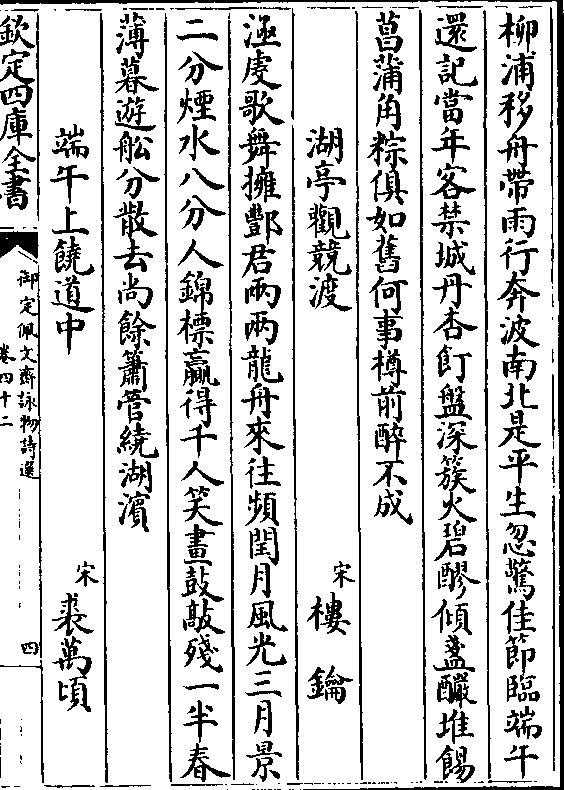 柳浦移舟帶雨行奔波南北是平生忽驚佳節臨端午
還記當年客禁城丹杏飣盤深簇火碧醪傾盞釅堆餳
菖蒲角粽俱如舊何事樽前醉不成
湖亭觀競渡 宋 樓鑰
涵虛歌舞擁酆君兩兩龍舟來往頻閏月風光三月景
二分煙水八分人錦標贏得千人笑畫鼓敲殘一半春
薄暮遊舩分散去尚餘簫管繞湖濱
端午上饒道中 宋 裘萬頃
欽定四庫全書 御定佩文齋詠物詩選 卷四十二 四